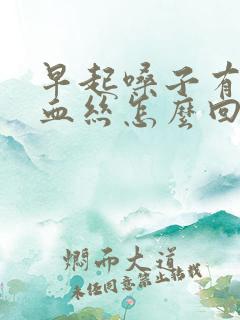 早起嗓子有
血丝怎麼回
燜而大道
未经同意禁止转载